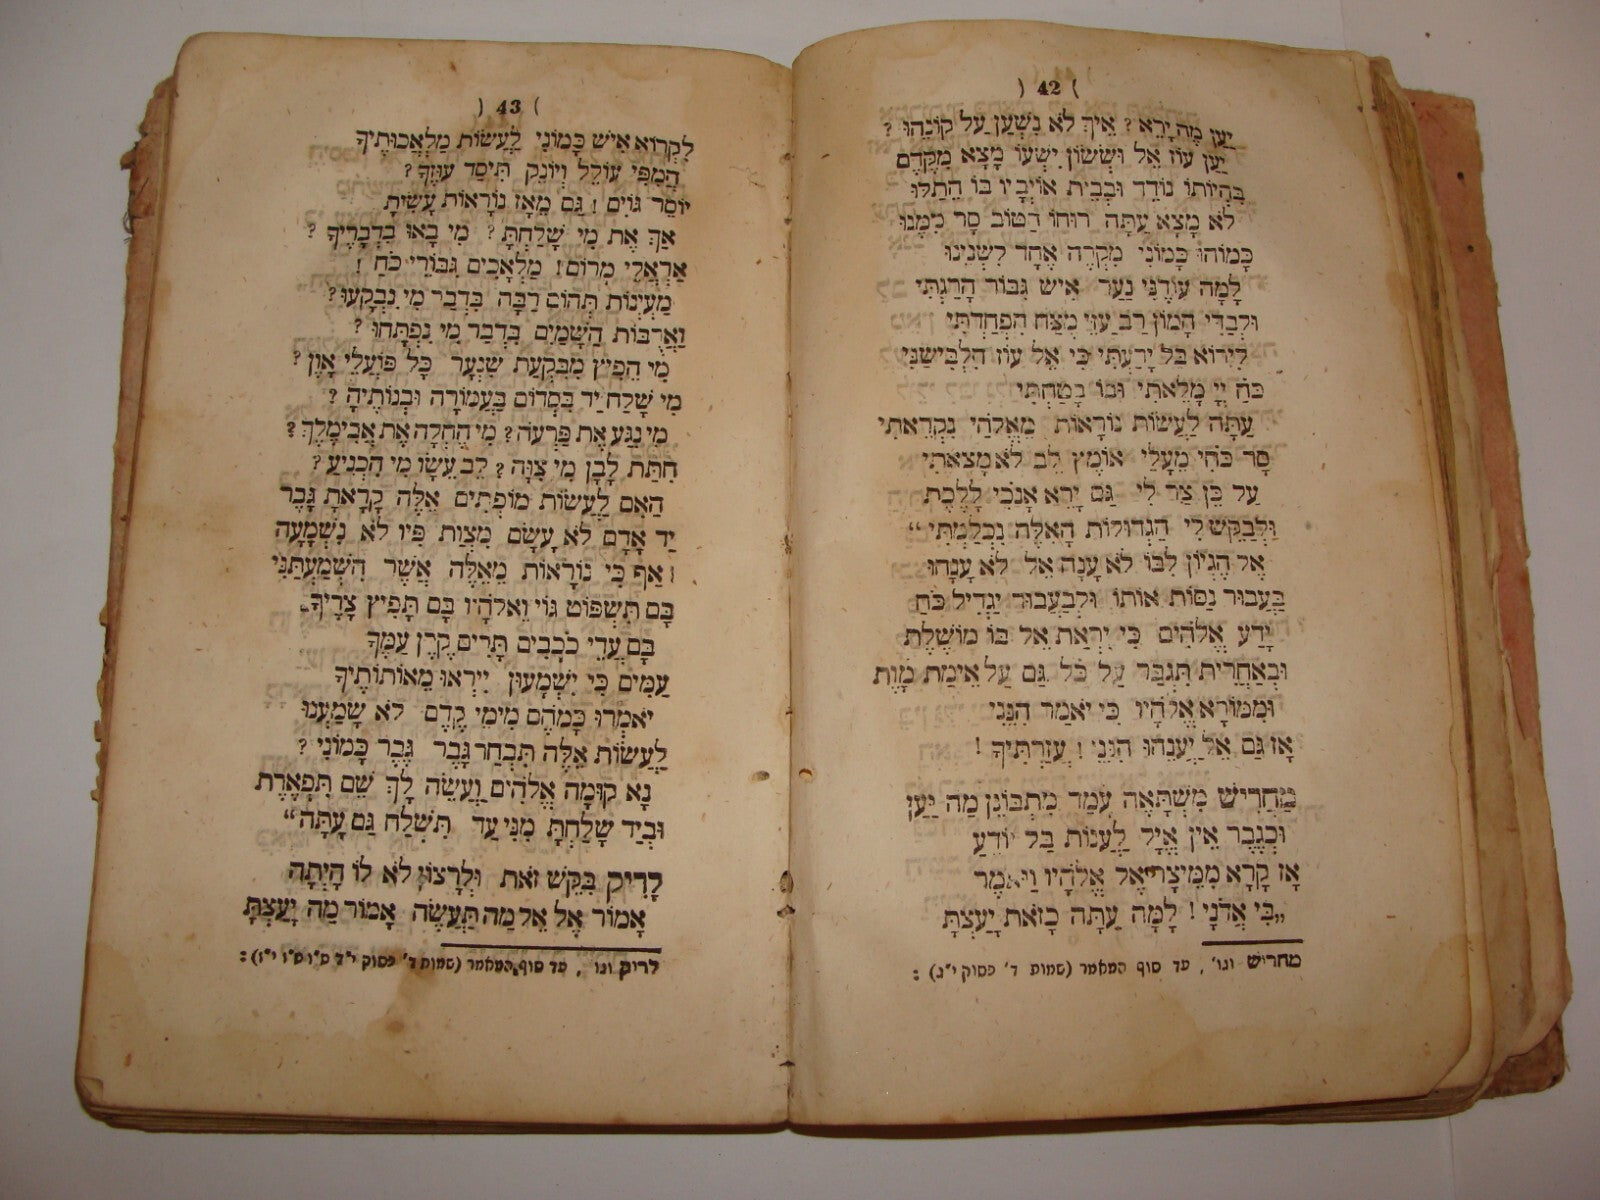 ( 42 )
יַעַן מַה יָרֵא? אֵיךְ לֹא נִשְׁעַן עַל קוֹנֵהוּ?
יַעַן עוֹז אֵל וּשְׂשׂוֹן יִשְׁעוֹ מָצָא מִקֶּדֶם
בִּהְיוֹתוֹ נוֹדֵד וּבְבֵית אוֹיְבָיו בּוֹ הֵתֵלּוּ
לֹא מָצָא עַתָּה רוּחוֹ הַטּוֹב סָר מִמֶּנּוּ
כָּמוֹהוּ כָּמוֹנִי מִקְרֶה אֶחָד לִשְׁנֵינוּ
לָמָּה עוֹדֶנִּי נַעַר אִישׁ גִּבּוֹר הָרַגְתִּי
וּלְבַדִּי הָמוֹן רַב עַזֵּי מִצַּח הִפְחַדְתִּי
לִירוֹא בַּל יָדַעְתִּי כִּי אֵל עוֹז הִלְבִּישַׁנִי
כֹּחַ יְיָ מָלֵאתִי וּבוֹ בָטַחְתִּי
עַתָּה לַעֲשׂוֹת נוֹרָאוֹת מֵאֱלֹהַי נִקְרֵאתִי
סָר כֹּחִי מֵעָלַי אוֹמֶץ לֵב לֹא מָצָאתִי
עַל כֵּן צַר לִי גַּם יָרֵא אָנֹכִי לָלֶכֶת
וּלְבַקֶּשׁ לִי הַגְּדוֹלוֹת הָאֵלֶּה נִכְלַמְתִּי"
אֶל הֶגְיוֹן לִבּוֹ לֹא עָנָה אֵל לֹא עָנָהוּ
בַּעֲבוּר נַסּוֹת אוֹתוֹ וּלְבַעֲבוּר יַגְדִּיל כֹּחַ
יָדַע אֱלֹהִים כִּי יִרְאַת אֵל בּוֹ מוֹשֶׁלֶת
וּבְאַחֲרִית תִּגְבַּר עַל כֹּל גַּם עַל אֵימַת מָוֶת
וּמִמּוֹרָא אֱלֹהָיו כִּי יֹאמַר הִנֵּנִי
אָז גַּם אֵל יַעֲנֵהוּ הִנֵּנִי! עֲזַרְתִּיךָ!
מַחֲרִישׁ מִשְׁתָּאֶה עָמַד מִתְבּוֹנֵן מַה יַּעַן
וּכְגֶבֶר אֵין אֱיָל לַעֲנוֹת בַּל יוֹדֵעַ
אָז קָרָא מִמֵּיצַר אֶל אֱלֹהָיו וַיֹּאמֶר
„בִּי אֲדֹנָי! לָמָּה עַתָּה כָזֹאת יָעַצְתָּ
מחריש וגו', עד סוף המאמר (שמות ד' פסוק י"ג):
( 43 )
לִקְרוֹא אִישׁ כָּמוֹנִי לַעֲשׂוֹת מַלְאֲכוּתֶיךָ
הֲמִפִּי עוֹלֵל וְיוֹנֵק תִּיסַד עוּזֶּךָ?
יוֹסֵר גּוֹיִם! גַּם מֵאָז נוֹרָאוֹת עָשִׂיתָ
אַךְ אֶת מִי שָׁלַחְתָּ? מִי בָאוּ בִּדְבָרֶיךָ?
אֶרְאֶלֵּי מָרוֹם! מַלְאָכִים גִּבּוֹרֵי כֹחַ!
מַעְיְנוֹת תְּהוֹם רַבָּה בִּדְבַר מִי נִבְקָעוּ?
וַאֲרֻבּוֹת הַשָּׁמַיִם בִּדְבַר מִי נִפְתָּחוּ?
מִי הֵפִיץ מִבִּקְעַת שִׁנְעָר כָּל פּוֹעֲלֵי אָוֶן?
מִי שָׁלַח יַד בִּסְדוֹם בַּעֲמוֹרָה וּבְנוֹתֶיהָ?
מִי נִגַּע אֶת פַּרְעֹה? מִי הֶחֱלָה אֶת אֲבִימֶלֶךְ?
חִתַּת לָבָן מִי צִוָּה? לֵב עֵשָׂו מִי הִכְנִיעַ?
הַאִם לַעֲשׂוֹת מוֹפְתִים אֵלֶּה קָרָאתָ גָּבֶר
יַד אָדָם לֹא עָשָׂם מִצְוַת פִּיו לֹא נִשְׁמָעָה
אַף כִּי נוֹרָאוֹת מֵאֵלֶּה אֲשֶׁר הִשְׁמַעְתַּנִי
בָּם תִּשְׁפּוֹט גּוֹי וֵאלֹהָיו בָּם תָּפִיץ צָרֶיךָ
בָּם עֲדֵי כֹכָבִים תָּרִים קֶרֶן עַמֶּךָ
עַמִּים כִּי יִשְׁמְעוּן יִירְאוּ מֵאוֹתוֹתֶיךָ
יֹאמְרוּ כָּמֹהֶם מִימֵי קֶדֶם לֹא שָׁמַעְנוּ
לַעֲשׂוֹת אֵלֶּה תִּבְחַר גָּבֶר גֶּבֶר כָּמוֹנִי?
נָא קוּמָה אֱלֹהִים וַעֲשֵׂה לָךְ שֵׁם תִּפְאֶרֶת
וּבְיַד שָׁלַחְתָּ מִנִּי עַד תִּשְׁלַח גַּם עָתָּה"
לָרִיק בִּקֵּשׁ זֹאת וּלְרָצוֹן לֹא לוֹ הָיְתָה
אָמוֹר אֶל אֵל מַה תַּעֲשֶׂה אָמוֹר מַה יָעַצְתָּ
לריק וגו', עד סוף המאמר (שמות ד' פסוק י"ד ט"ו ט"ז י"ז):